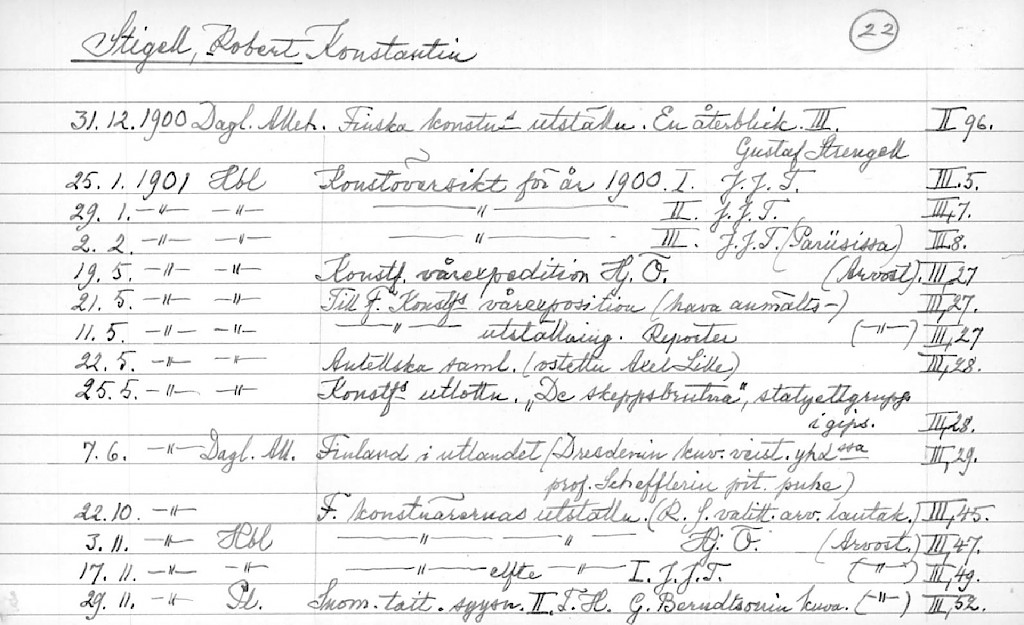 Stigell, Robert Konstantin
22
31.12.1900 Dagl. Alleh. Finska konstn:s utställn. En återblick. III. II 96.
Gustaf Strengell
25. 1. 1901 Hbl Konstöversikt för år 1900. I. J.J.T. III.5.
29. 1. -"- -"- -"- II. J.J.T. III,7.
2. 2. -"- -"- -"- III. J.J.T. (Pariisissa) III.8.
19. 5. -"- -"- Konstf. vårexpedition Hj. Ö. (Arvost). III,27
21. 5. -"- -"- Till F. Konstfs vårexposition (hava anmälts-) III,27.
11. 5. -"- -"- -"- utställning. Reporter (-"-) III,27
22. 5. -"- -"- Antellska saml. (ostettu Axel Lille) III,28.
25. 5. -"- -"- Konstfs utlottn. „De skeppsbrutna", statyettgrupp
i gips. III,28.
7. 6. -"- Dagl. All. Finland i utlandet (Dresdenin kuv. veist. yhd:ssa III,29.
prof. Schefflerin pit. puhe)
22.10. -"- F. konstnärernas utställn. (R. S. valitt. arv. lautak.) III,45.
3. 11. -"- Hbl -"- -"- Hj. Ö. (Arvost.) III,47.
17. 11. -"- -"- -"- elfte -"- I. J.J.T. (-"-) III,49.
29. 11. -"- Pl. Suom. tait. syysn. II. T. H. G. Berndtsonin kuva. (-"-) III,52.